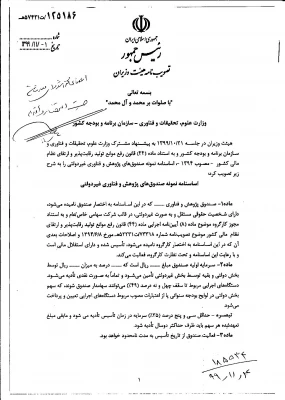 ۱۲۵۱۸۶/ت۵۷۳۳۱هـ
جمهوری اسلامی ایران
رئیس جمهور
تصویب نامه هیئت وزیران
شماره
تاریخ ۱۳۹۹/۱۱/۰۱
بسمه تعالی
"با صلوات بر محمد و آل محمد"
وزارت علوم، تحقیقات و فناوری - سازمان برنامه و بودجه کشور
هیئت وزیران در جلسه ۱۳۹۹/۱۰/۲۱ به پیشنهاد مشترک وزارت علوم، تحقیقات و فناوری و
سازمان برنامه و بودجه کشور و به استناد ماده (۴۴) قانون رفع موانع تولید رقابت‌پذیر و ارتقای نظام
مالی کشور - مصوب ۱۳۹۴ - اساسنامه نمونه صندوق‌های پژوهش و فناوری غیردولتی را به شرح
زیر تصویب کرد:
اساسنامه نمونه صندوق‌های پژوهش و فناوری غیردولتی
ماده۱- صندوق پژوهش و فناوری ........ که در این اساسنامه به اختصار صندوق نامیده می‌شود،
دارای شخصیت حقوقی مستقل و به صورت غیردولتی، در قالب شرکت سهامی خاص/عام و به استناد
مجوز کارگروه موضوع ماده (۸) آیین‌نامه اجرایی ماده (۴۴) قانون رفع موانع تولید رقابت‌پذیر و ارتقای
نظام مالی کشور موضوع تصویب‌نامه شماره
آن که در این اساسنامه به اختصار کارگروه نامیده می‌شود، تأسیس شده و دارای استقلال مالی است
و با رعایت این اساسنامه و تحت نظارت کارگروه فعالیت می‌کند.
ماده۲- سرمایه اولیه صندوق مبلغ ........ ریال است که ........ درصد به میزان ........ ریال توسط
بخش دولتی و بقیه توسط بخش غیردولتی تأمین می‌شود و تماماً به صورت نقدی تأدیه می‌شود.
دستگاه‌های اجرایی مربوط تا سقف چهل و نه درصد (۴۹٪) می‌توانند سهامدار صندوق شوند، که سهم
بخش دولتی در لوایح بودجه سنواتی یا از اعتبارات مصوب مربوط دستگاه‌های اجرایی تعیین و پرداخت
می‌شود.
تبصره- حداقل سی و پنج درصد (۳۵٪) سرمایه در زمان تأسیس تأدیه می شود و مابقی مبلغ
تعهدشده هر سهم باید ظرف حداکثر دوسال تأدیه شود.
ماده۳- فعالیت صندوق از تاریخ تأسیس به مدت نامحدود خواهد بود.
۱۸۵۵۲۴
۹۹،۱۱،۴
۱